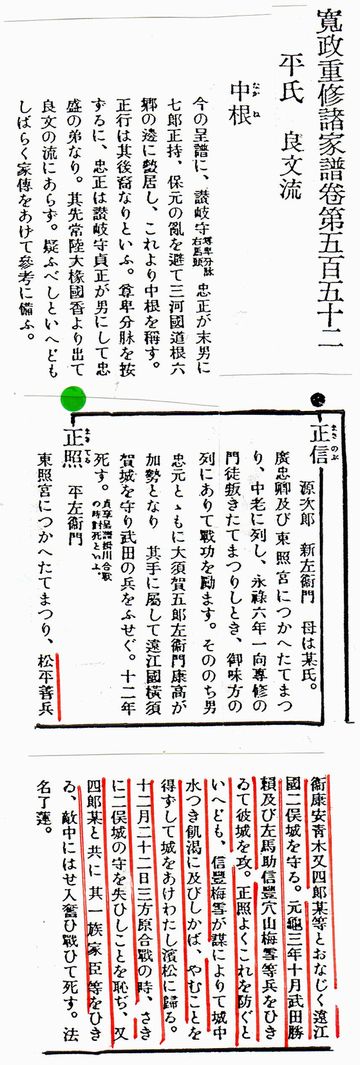 寬政重修諸家譜卷第五百五十二
平氏 良文流
中根
なかね
今の呈譜に、讃岐守尊卑分脉右馬頭忠正が末男に
七郎正持、保元の亂を避て三河國道根六
鄉の邊に蟄居し、これより中根を稱す。
正行は其後裔なりといふ。尊卑分脉を按
ずるに、忠正は讃岐守貞正が男にして忠
盛の弟なり。其先常陸大掾國香より出て
良文の流にあらず。疑ふべしといへども
しばらく家傳をあけて參考に備ふ。
正信
まさのぶ
源次郎 新左衞門 母は某氏。
廣忠卿及び東照宮につかへたてまつ
り、中老に列し、永祿六年一向專修の
門徒叛きたてまつりしとき、御味方の
列にありて戰功を勵ます。そののち男
忠元とゝもに大須賀五郎左衞門康高が
加勢となり 其手に屬して遠江國橫須
賀城を守り武田の兵をふせぐ。十二年
死す。貞享呈譜掛川合戰の時討死といふ。
正照
まさてる
平左衞門
東照宮につかへたてまつり、松平善兵
衞康安靑木又四郎某等とおなじく遠江
國二俣城を守る。元龜三年十月武田勝
賴及び左馬助信豐穴山梅雪等兵をひき
ゐて彼城を攻。正照よくこれを防ぐと
いへども、信豐梅雪が謀によりて城中
水つき飢渴に及びしかば、やむことを
得ずして城をあけわたし濱松に歸る。
十二月二十二日三方原合戰の時、さき
に二俣城の守を失ひしことを恥ぢ、又
四郎某と共に其一族家臣等をひき
ゐ、敵中にはせ入奮ひ戰ひて死す。法
名了蓮。